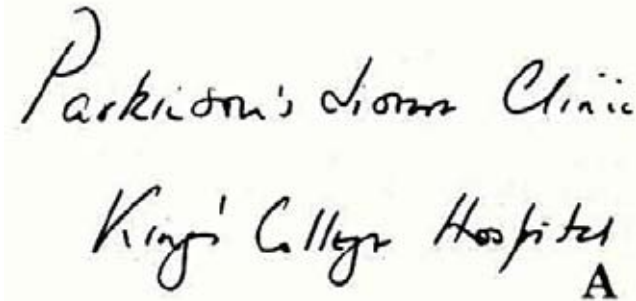 Parkinson's disease Clinic
King's College Hospital
A